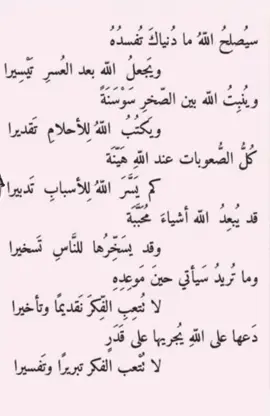 سيُصلِحُ اللّهُ ما دُنياكَ تُفسدُهُ
ويَجعلُ اللّه بعد العُسرِ تَيْسِيرا
ويُنبِتُ اللّه بين الصّخرِ سَوْسَنَةً
ويَكتُبُ اللّهُ لِلأحلامِ تَقديرا
كُلُّ الصُّعوباتِ عند اللّهِ هَيّنَة
كم يَسَّرَ اللّهُ للأسبابِ تَدبيرا
قد يُبعِدُ اللّه أشياءَ مُحَبَّبَة
وقد يسَخِّرُها للنَّاسِ تَسخيرا
وما تُريدُ سَيأتي حينَ مَوعِدِهِ
لا تُتعِبِ الفِكرَ تَقديمًا وتأخيرا
دَعها على اللّهِ يُجريها على قَدَرٍ
لا تُتْعب الفكر تبريرًا وتَفسيرا